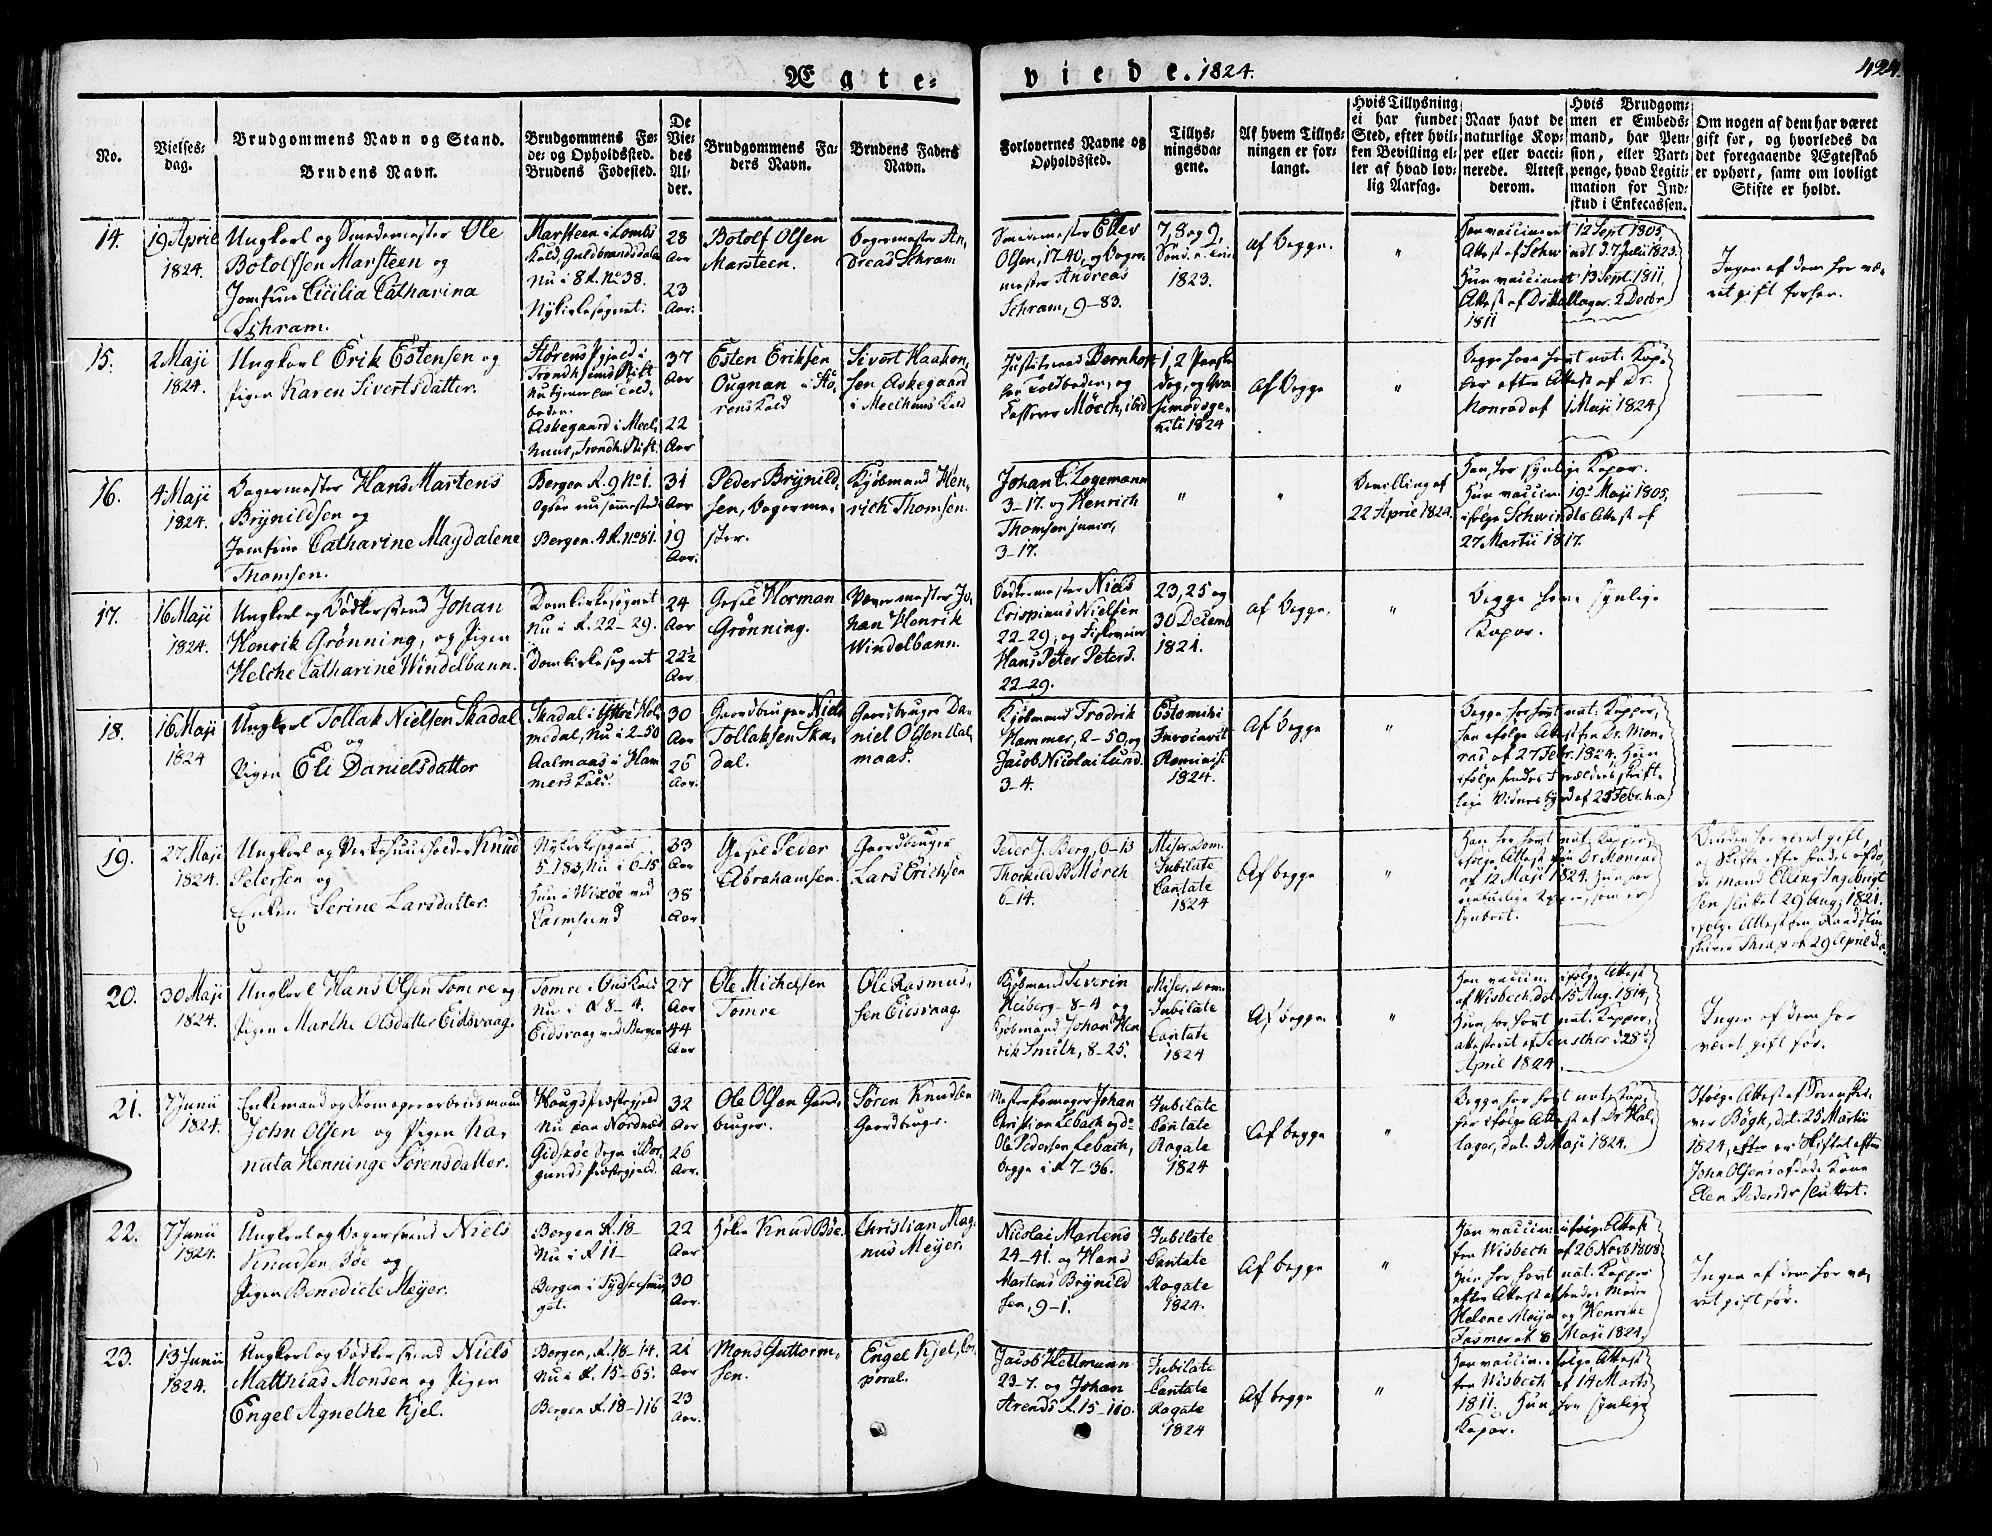 Ægte-
viede. 1824.
424.
No.
Vielses-
dag.
Brudgommens Navn og Stand.
Brudens Navn.
Brudgommens Fø-
de- og Opholdssted.
Brudens Fødested.
De
Vie-
des
Al-
der.
Brudgommens Fa-
ders Navn.
Brudens Faders
Navn.
Forlovernes Navne og
Opholdssted.
Tillys-
ningsda-
gene.
Af hvem Tillys-
ningen er for-
langt.
Hvis Tillysning
ei har fundet
Sted, efter hvil-
ken Bevilling el-
ler af hvad lov-
lig Aarsag.
Naar havt de
naturlige Kop-
per eller vacci-
nerede. Attest
derom.
Hvis Brudgom-
men er Embeds-
mand, har Pen-
sion, eller Vart-
penge, hvad Legiti-
mation for Ind-
skud i Enkecassen.
Om nogen af dem har været
gift før, og hvorledes da
det foregaaende Ægteskab
er ophørt, samt om lovligt
Skifte er holdt.
14.
19 April
1824.
Ungkarl og Smedemester Ole
Botolfsen Marsteen og
Jomfrue Cicilia Catharina
Schram.
Marsteen i Lombs
Kald, Guldbrandsdalen
Nu i 8 R. No 38.
Nykirkesognet.
28
Aar
23
Aar.
Botolf Olsen
Marsteen.
Bagermester An-
dreas Schram
Smedemester Ellev
Olsen, 17-40, og Bager-
mester Andreas
Schram, 9-83.
7, 8 og 9
Sønd. e. Trin.
1823.
Af Begge.
"
Han vaccineret 12 Sept 1805,
Attest af Schwindt d. 7 Julii 1823.
Hun vaccineret 13 Sept. 1811,
Attest af Dr. Hallager. 2 Decbr
1811
Ingen af dem har væ-
ret gift forhen.
15.
2 Maji
1824.
Ungkarl Erik Estensen og
Pigen Karen Sivertsdatter.
Størens Pgjeld i
Trondhjems Stift
Askegaard i Meel-
huus, Trondh. Stift.
37
Aar
22
Aar
Esten Eriksen
Ougnan i Stö-
rens Kald
Sivert Haakon-
sen Askegaard
i Meelhuus Kald
Justitsraad Bernhoft
paa Toldboden, og
Mörch, ibid
1, 2 Paaske
dag, og Qva
simodoge-
niti 1824
Af Begge
"
Begge have havt nat. Kop-
per efter Attest af Dr.
Konrad af 1 Maji 1824
16.
4 Maji
1824.
Bagermester Hans Martens
Brÿnildsen og
Jomfrue Catharine Magdalene
Thomsen.
Bergen R. 9 No 1.
Ogsaa nu sammested
Bergen. 4 R. No 81.
31
Aar
19
Aar.
Peder Brÿnild-
sen, Bagerme-
ster.
Kjöbmand Hen-
rich Thomsen.
Johan C. Logemann
3-17. og Henrich
Thomsen junior,
3-17.
"
"
Bevilling af
22 April 1824
Han har synlige Kopar.
Hun vaccin. 19 Maji 1805,
ifölge Schwindts Attest af
27 Martii 1817.
17.
16 Maji
1824.
Ungkarl og Bödkersvend Johan
Henrik Grönning, og Pigen
Helche Catharine Windelbann.
Domkirkesognet
Nu i R. 22-29.
Domkirkesognet
24
Aar
22½
Aar
Gesel Herman
Grönning.
Vævermester Jo-
han Henrik
Windelbann.
Bödkermester Niels
Crispinus Nielsen
22-29, og
Hans Peter Peters.
22-29.
23, 25 og
30 Decemb
1821.
Af Begge.
"
Begge have synlige
Kopar.
18.
16 Maji
1824
Ungkarl Tollak Nielsen Skadal
og
Pigen Eli Danielsdatter
Skadal i Yttre Hol-
medal, Nu i 2-50
Aalmaas i Ham-
mers Kald.
30
Aar
26
Aar.
Gaardbruger Niels
Tollaksen Ska-
dal.
Gaardbruger Da-
niel Olsen Aal-
maas.
Kjöbmand Fredrik
Hammer, 2-50, og
Jacob Nicolai Lund
3-4.
Estomihi
Invocavit
Reminisc.
1824.
Af Begge
"
Begge har havt nat. Kopper,
han efölge Attest fra Dr. Mon-
rad af 27 Febr. 1824, Hun
ifölge hendes Forældres skrift-
lige Vidnesbyrd af 25 Febr. h.a
19.
27 Maji
1824.
Ungkarl og Vertshuusholder Knud
Petersen og
Enken Serine Larsdatter.
Nykirkesognet
5-183, Nu i 6-15
Hun i Wixöe ved
Karmsund
33
Aar
38
Aar
Gesel Peder
Abrahamsen.
Gaardbruger
Lars Erichsen
Peder J. Berg, 6-13
Thorkild B Mörch
6-14.
Miser. Dom.
Jubilate
Cantate
1824
Af begge
"
Han har havt nat. Kopper,
efölge Attest fra Dr Monrad
af 12 Maji 1824. Hun har
naturlige Kopper, som er
synbart.
Bruden har været gift,
og Skifte efter hendes afdø-
de Mand Elling Ingebrigt
sen sluttet 29 Aug. 1821.
efölge Attest fra
af 29 April d.a.
20.
30 Maji
1824.
Ungkarl Hans Olsen Tomre og
Pigen Marthe Olsdatter Eidsvaag.
Tomre i Ous Kald
Nu i R 8-4.
Eidsvaag ved Bergen
27
Aar
44
Aar
Ole Michelsen
Tomre
Ole Rasmus-
sen Eidsvaag.
Kjöbmand Severin
Heiberg. 8-4 og
Kjöbmand Johan Hen
rik Smith, 8-25.
Miser. Dom.
Jubilate
Cantate
1824
Af begge
"
Han vaccin. ifölge Attest
af Wisbech, dat. 15 Aug. 1814,
Hun har havt nat. Kopper,
attesteret af d 28
April 1824.
Ingen af dem har
været gift før.
21.
7 Junii
1824.
Enkemand og
John Olsen og Pigen Ha-
nuta Henninge Sörensdatter.
Haugs Præstegjeld
Nu paa Nordnæs
Gidsköe Sogn i Bor-
gunds Præstegjeld.
32
Aar
26
Aar.
Ole Olsen Gard-
bruger.
Sören Knudsen
Gaardbruger.
Johan
Christian Lebach og d
Ole Pedersen Lebach,
begge i R 7-36.
Jubilate
Cantate
Rogate
1824
Af begge
"
Begge har havt nat Kop-
per efölge Attest af Dr Hal-
lager, dat. 3 Maji 1824.
Ifölge Attest af Sorenskri-
ver Bögh, dat. 25 Martii
1824, er Skiftet efter
John Olsens afdøde Kone
Elen Pedersdr sluttet.
22.
7 Junii
1824.
Ungkarl og Bagersvend Niels
Knudsen Böe og
Pigen Benedicte Meÿer.
Bergen R. 18-
Nu i R 11-
Bergen i Tydskesme-
get.
22
Aar
30
Aar.
Knud Böe.
Christian Mag-
nus Meÿer.
Nicolai Martens
24-41. og Hans
Martens Brÿnild
sen, 9-1.
Jubilate
Cantate
Rogate
1824.
Af begge
"
Han vaccin. ifölge Attest
fra Wisbech af 26 Novb 1808
Hun har havt nat. Kopper
efter Attest af hendes Moder
Helene Meÿer og Henrike
Fasmer af 8 Maji 1824.
Ingen af dem har væ-
ret gift før.
23.
13 Junii
1824.
Ungkarl og Bödkersvend Niels
Matthias Monsen og Pigen
Engel Agnethe Kjel.
Bergen, R. 18-14.
Nu i R. 15-65.
Bergen R. 18-116
21
Aar
23
Aar.
Mons Guttorm-
sen.
Engel Kjel, Cor-
poral.
Jacob Hellmann
23-7. og Johan
Arends R. 15-110.
Jubilate
Cantate
Rogate
1824
Af begge
"
Han vaccin. efölge Attest
fra Wisbech af 14 Marts
1811. Hun har synlige
Kopar.